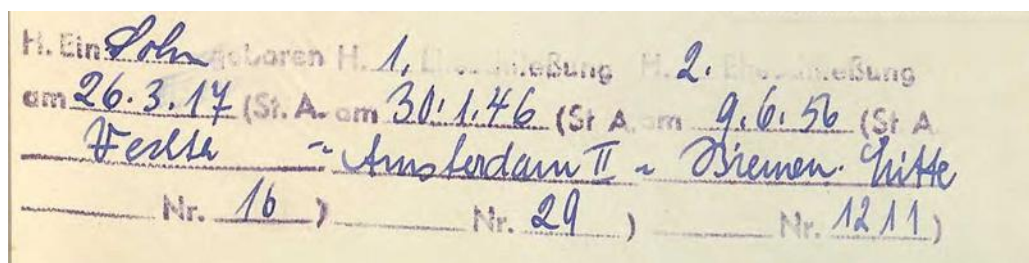 H. Ein Sohn geboren H. 1. Eheschließung H. 2. Eheschließung
am 26.3.17 (St. A. am 30.1.46 (St A. am 9.6.56 (St A
Vechta - Amsterdam II - Bremen-Mitte
Nr. 16 ) Nr. 29 ) Nr. 1211 )